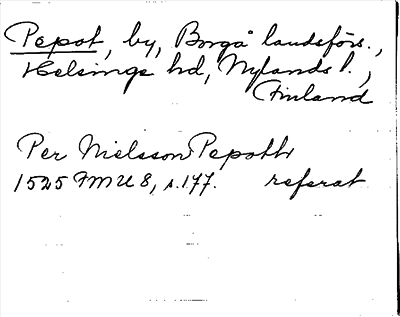 Pepot, by, Borgå landsförs.,
Helsinge hd, Nylands l.,
Finland
Per Nielsson Pepotth
1525 FMU 8, s.177. referat